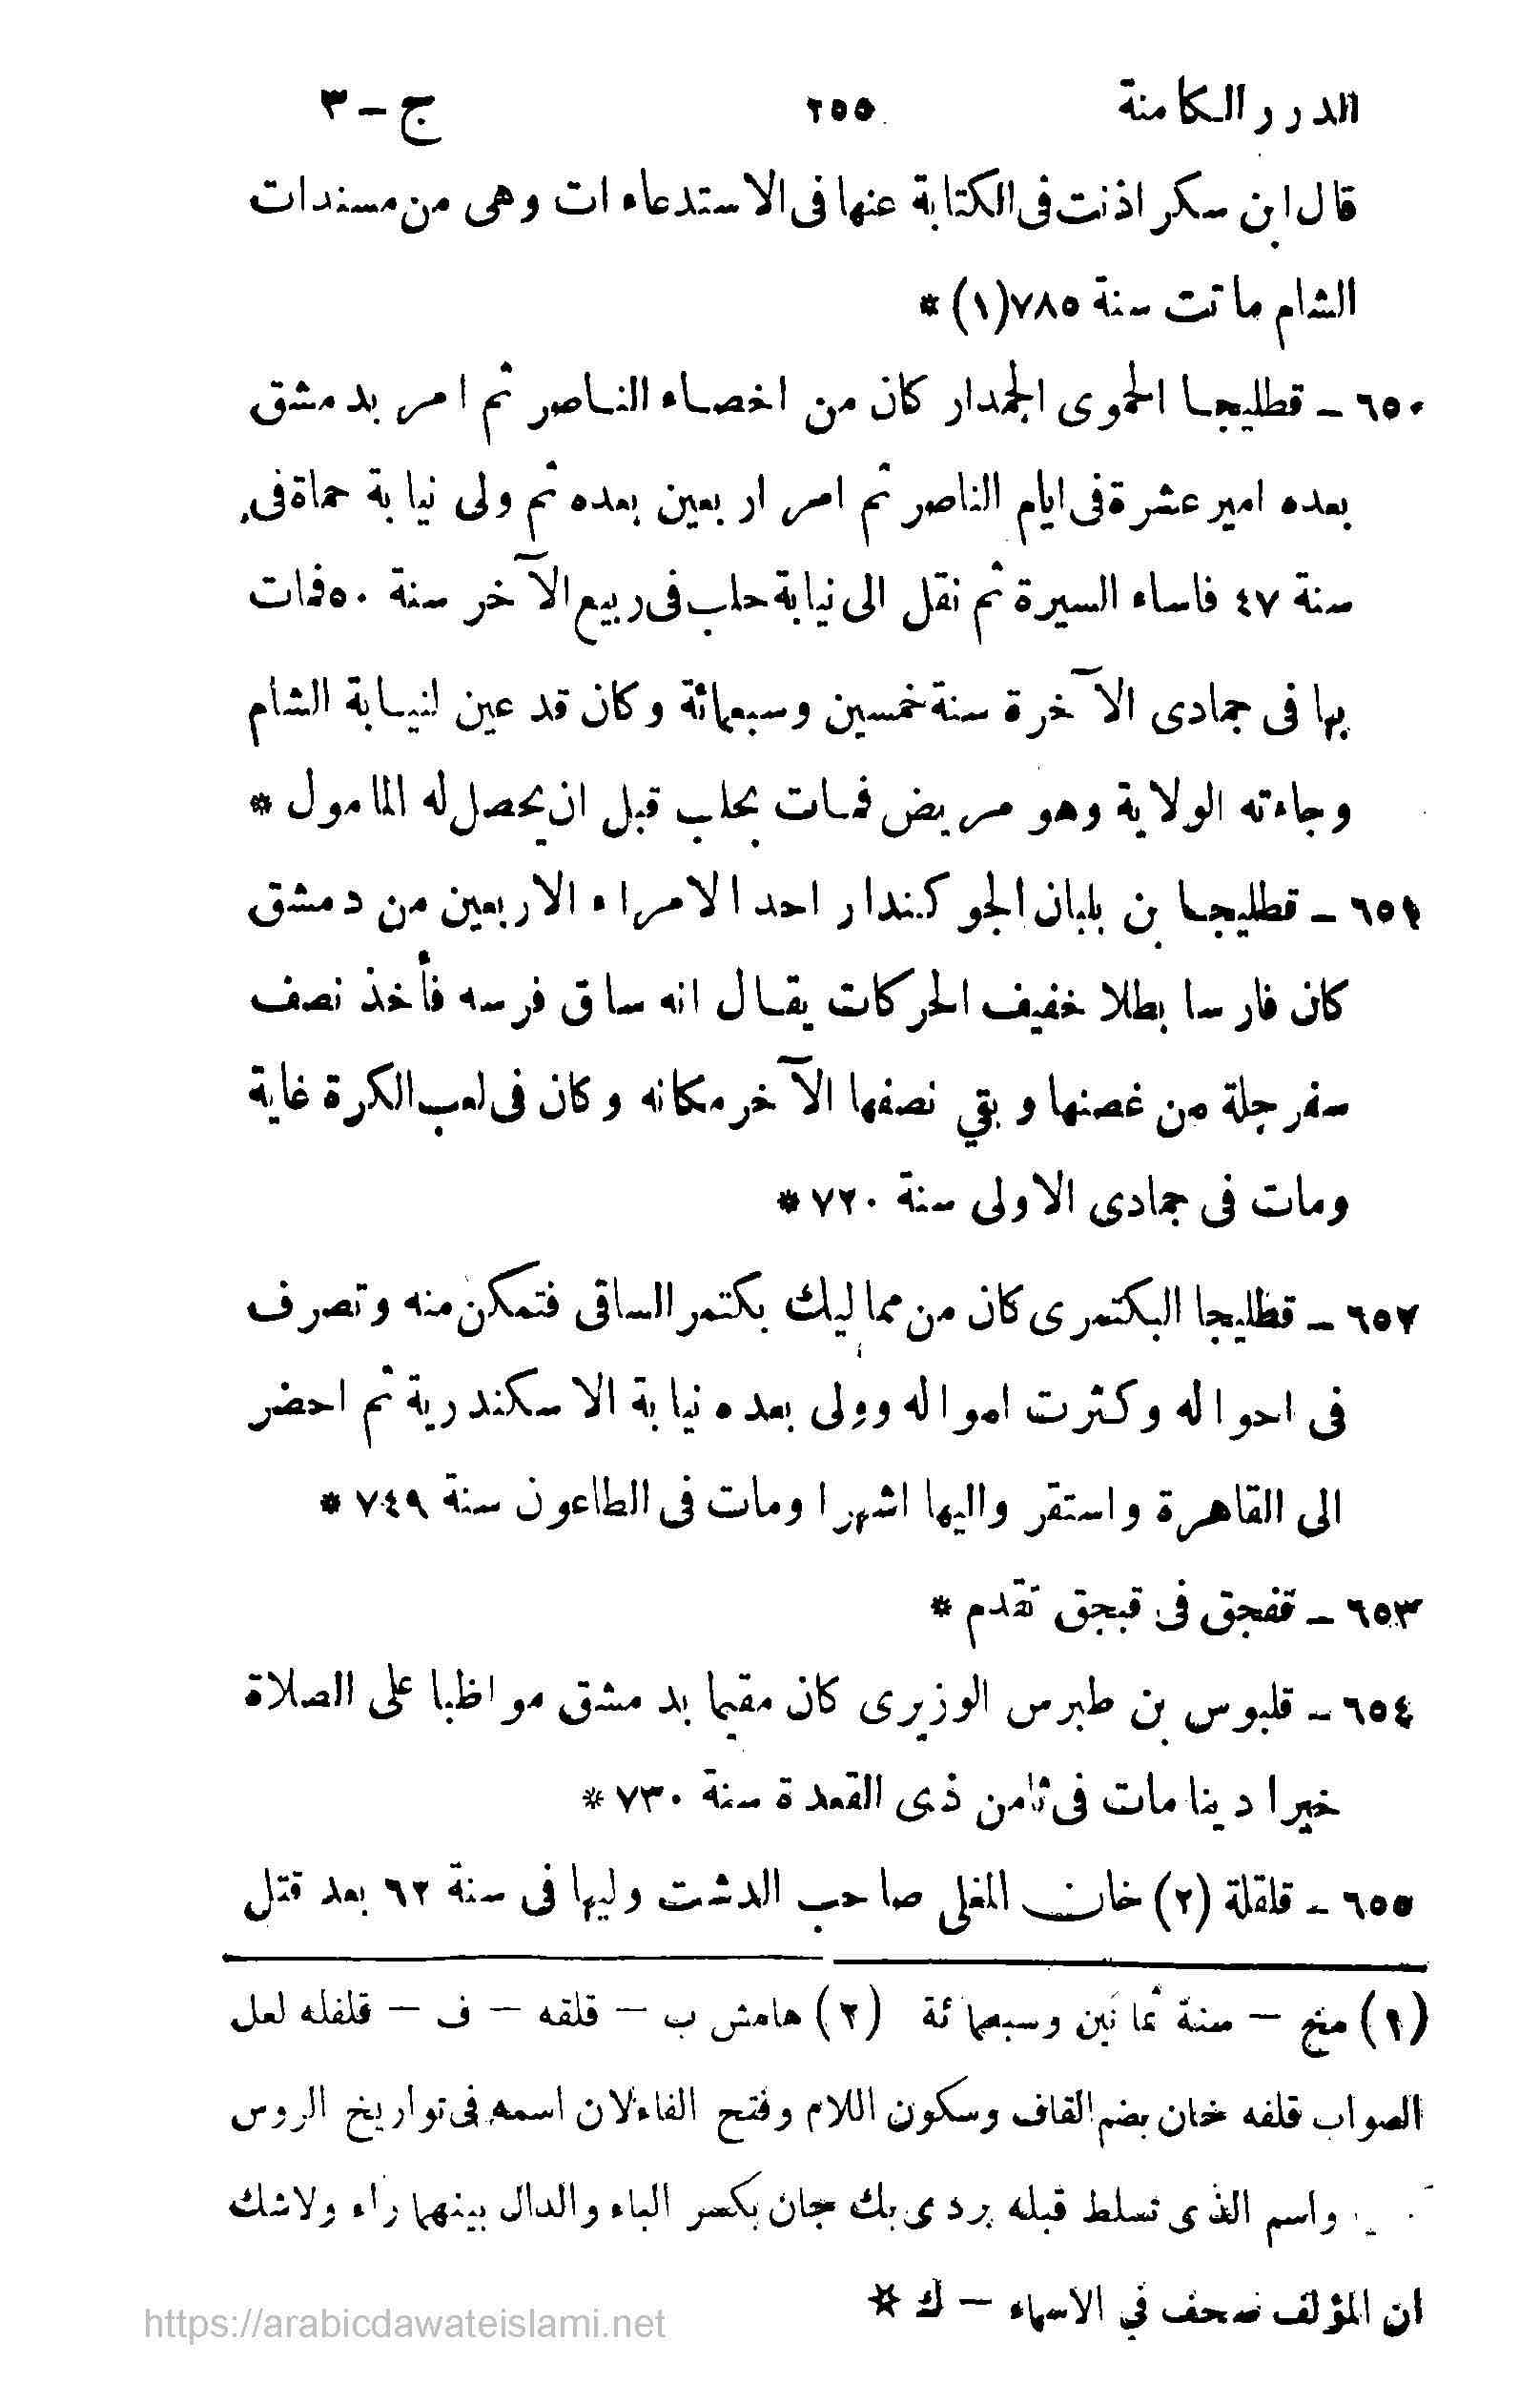 الدرر الكامنة ٢٥٥ ج - ٣
قال ابن سكر اذنت فى الكتابة عنها فى الاستدعاءات وهى من مسندات
الشام ماتت سنة ٧٨٥ (١) *
٦٥٠ - قطليجا الحموى الجمدار كان من اخصاء الناصر ثم امر بدمشق
بعده امير عشرة فى ايام الناصر ثم امر اربعين بعده ثم ولى نيابة حماة فى
سنة ٤٧ فاساء السيرة ثم نقل الى نيابة حلب فى ربيع الآخر سنة ٥٠ فمات
بها فى جمادى الآخرة سنة خمسين وسبعمائة وكان قد عين لنيابة الشام
وجاءته الولاية وهو مريض فمات بحلب قبل ان يحصل له المامول *
٦٥١ - قطليجا بن بلبان الجوكندار احد الامراء الاربعين من دمشق
كان فارسا بطلا خفيف الحركات يقال انه ساق فرسه فأخذ نصف
سفرجلة من غصنها وبقي نصفها الآخر مكانه وكان فى لعب الكرة غاية
ومات فى جمادى الاولى سنة ٧٢٠ *
٦٥٢ - قطليجا البكتمرى كان من مماليك بكتمر الساقى فتمكن منه وتصرف
فى احواله وكثرت امواله وولى بعده نيابة الاسكندرية ثم احضر
الى القاهرة واستقر واليها اشهرا ومات فى الطاعون سنة ٧٤٩ *
٦٥٣ - قفجق فى قبجق تقدم *
٦٥٤ - قلبوس بن طبرس الوزيرى كان مقيما بدمشق مواظبا على الصلاة
خيرا دينا مات فى ثامن ذى القعدة سنة ٧٣٠ *
٦٥٥ - قلقلة (٢) خان المغلى صاحب الدشت وليها فى سنة ٦٢ بعد قتل
(١) مخ - سنة ثمانين وسبعمائة (٢) هامش ب - قلقه - ف - قلفله لعل
الصواب قلفه خان بضم القاف وسكون اللام وفتح الفاء لان اسمه فى تواريخ الروس
واسم الذى تسلط قبله بردى بك جان بكسر الباء والدال بينهما راء ولاشك
ان المؤلف صحف في الاسماء - ك *
https://arabicdawateislami.net